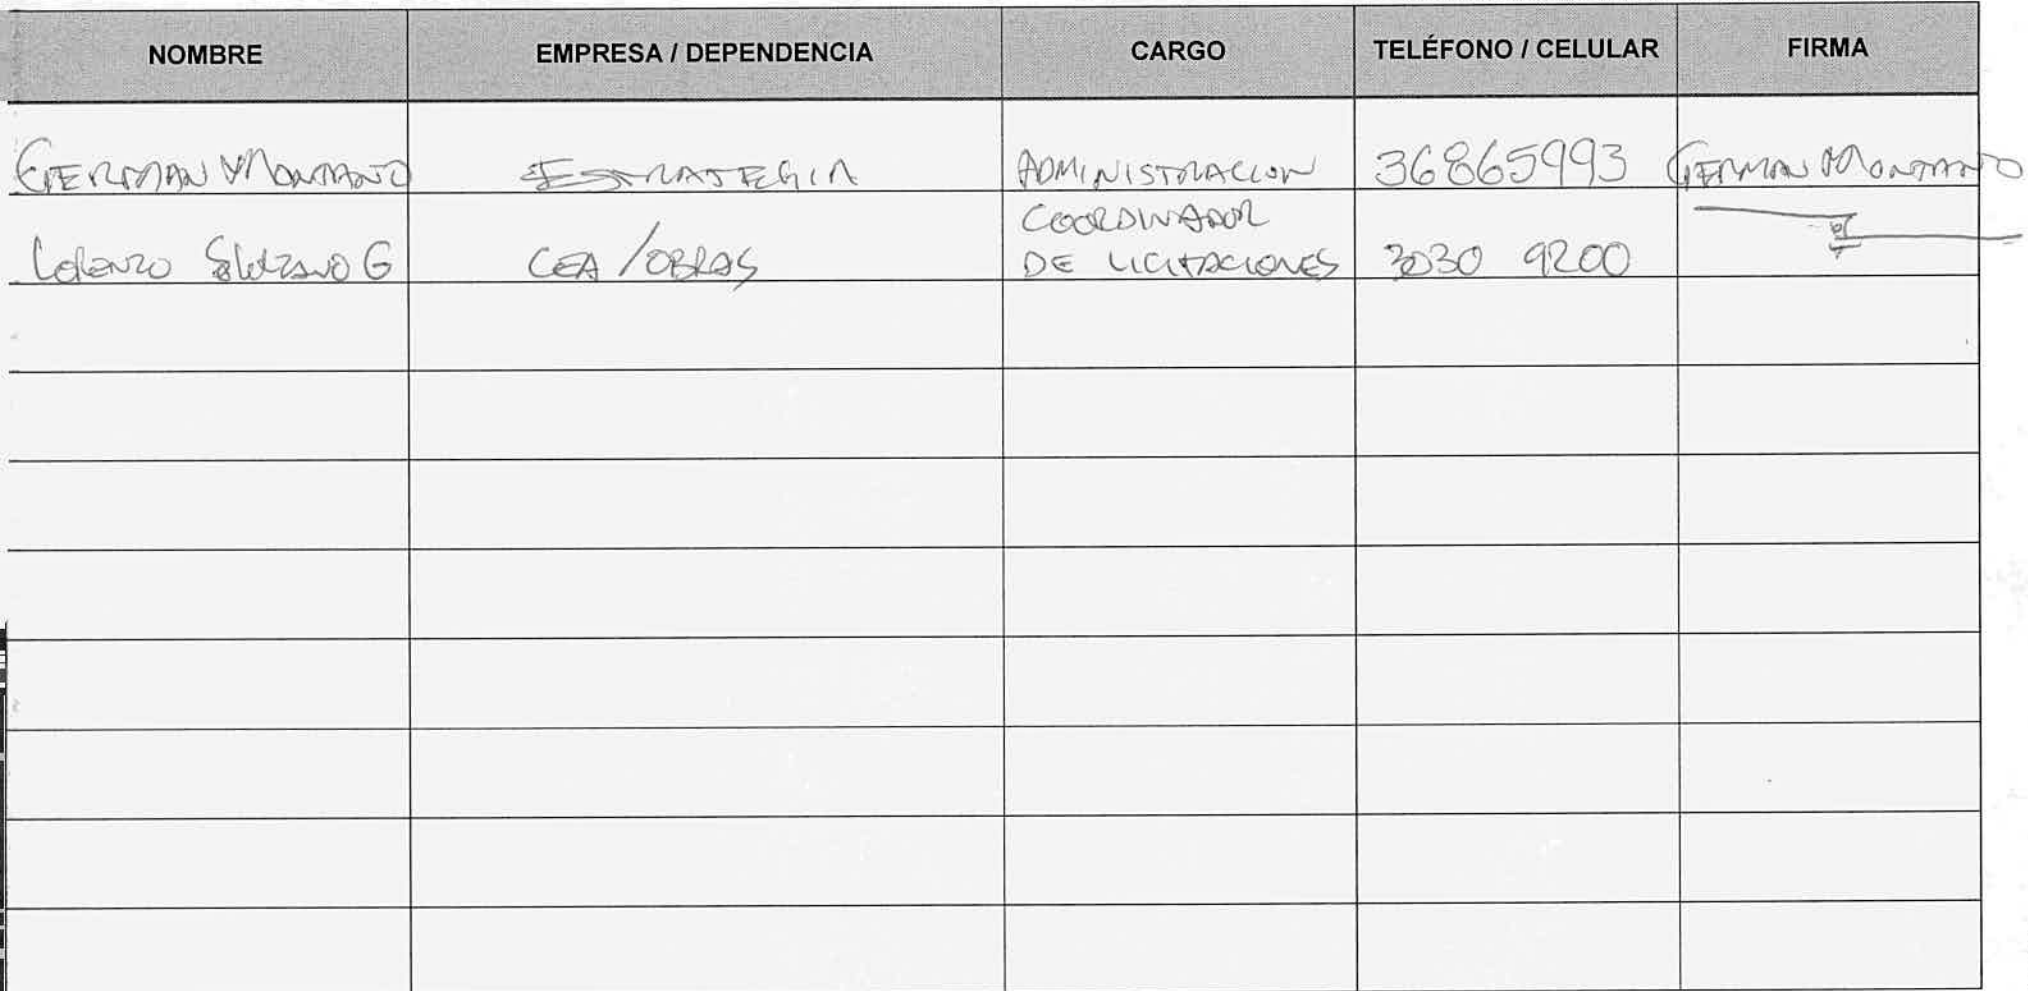 NOMBRE EMPRESA / DEPENDENCIA CARGO TELÉFONO / CELULAR FIRMA
GERMAN MONTAÑO ESTRATEGIA ADMINISTRACION 36865993 GERMAN MONTAÑO
COORDINADOR
LORENZO G CEA / OBRAS DE LICITACIONES 3030 9200